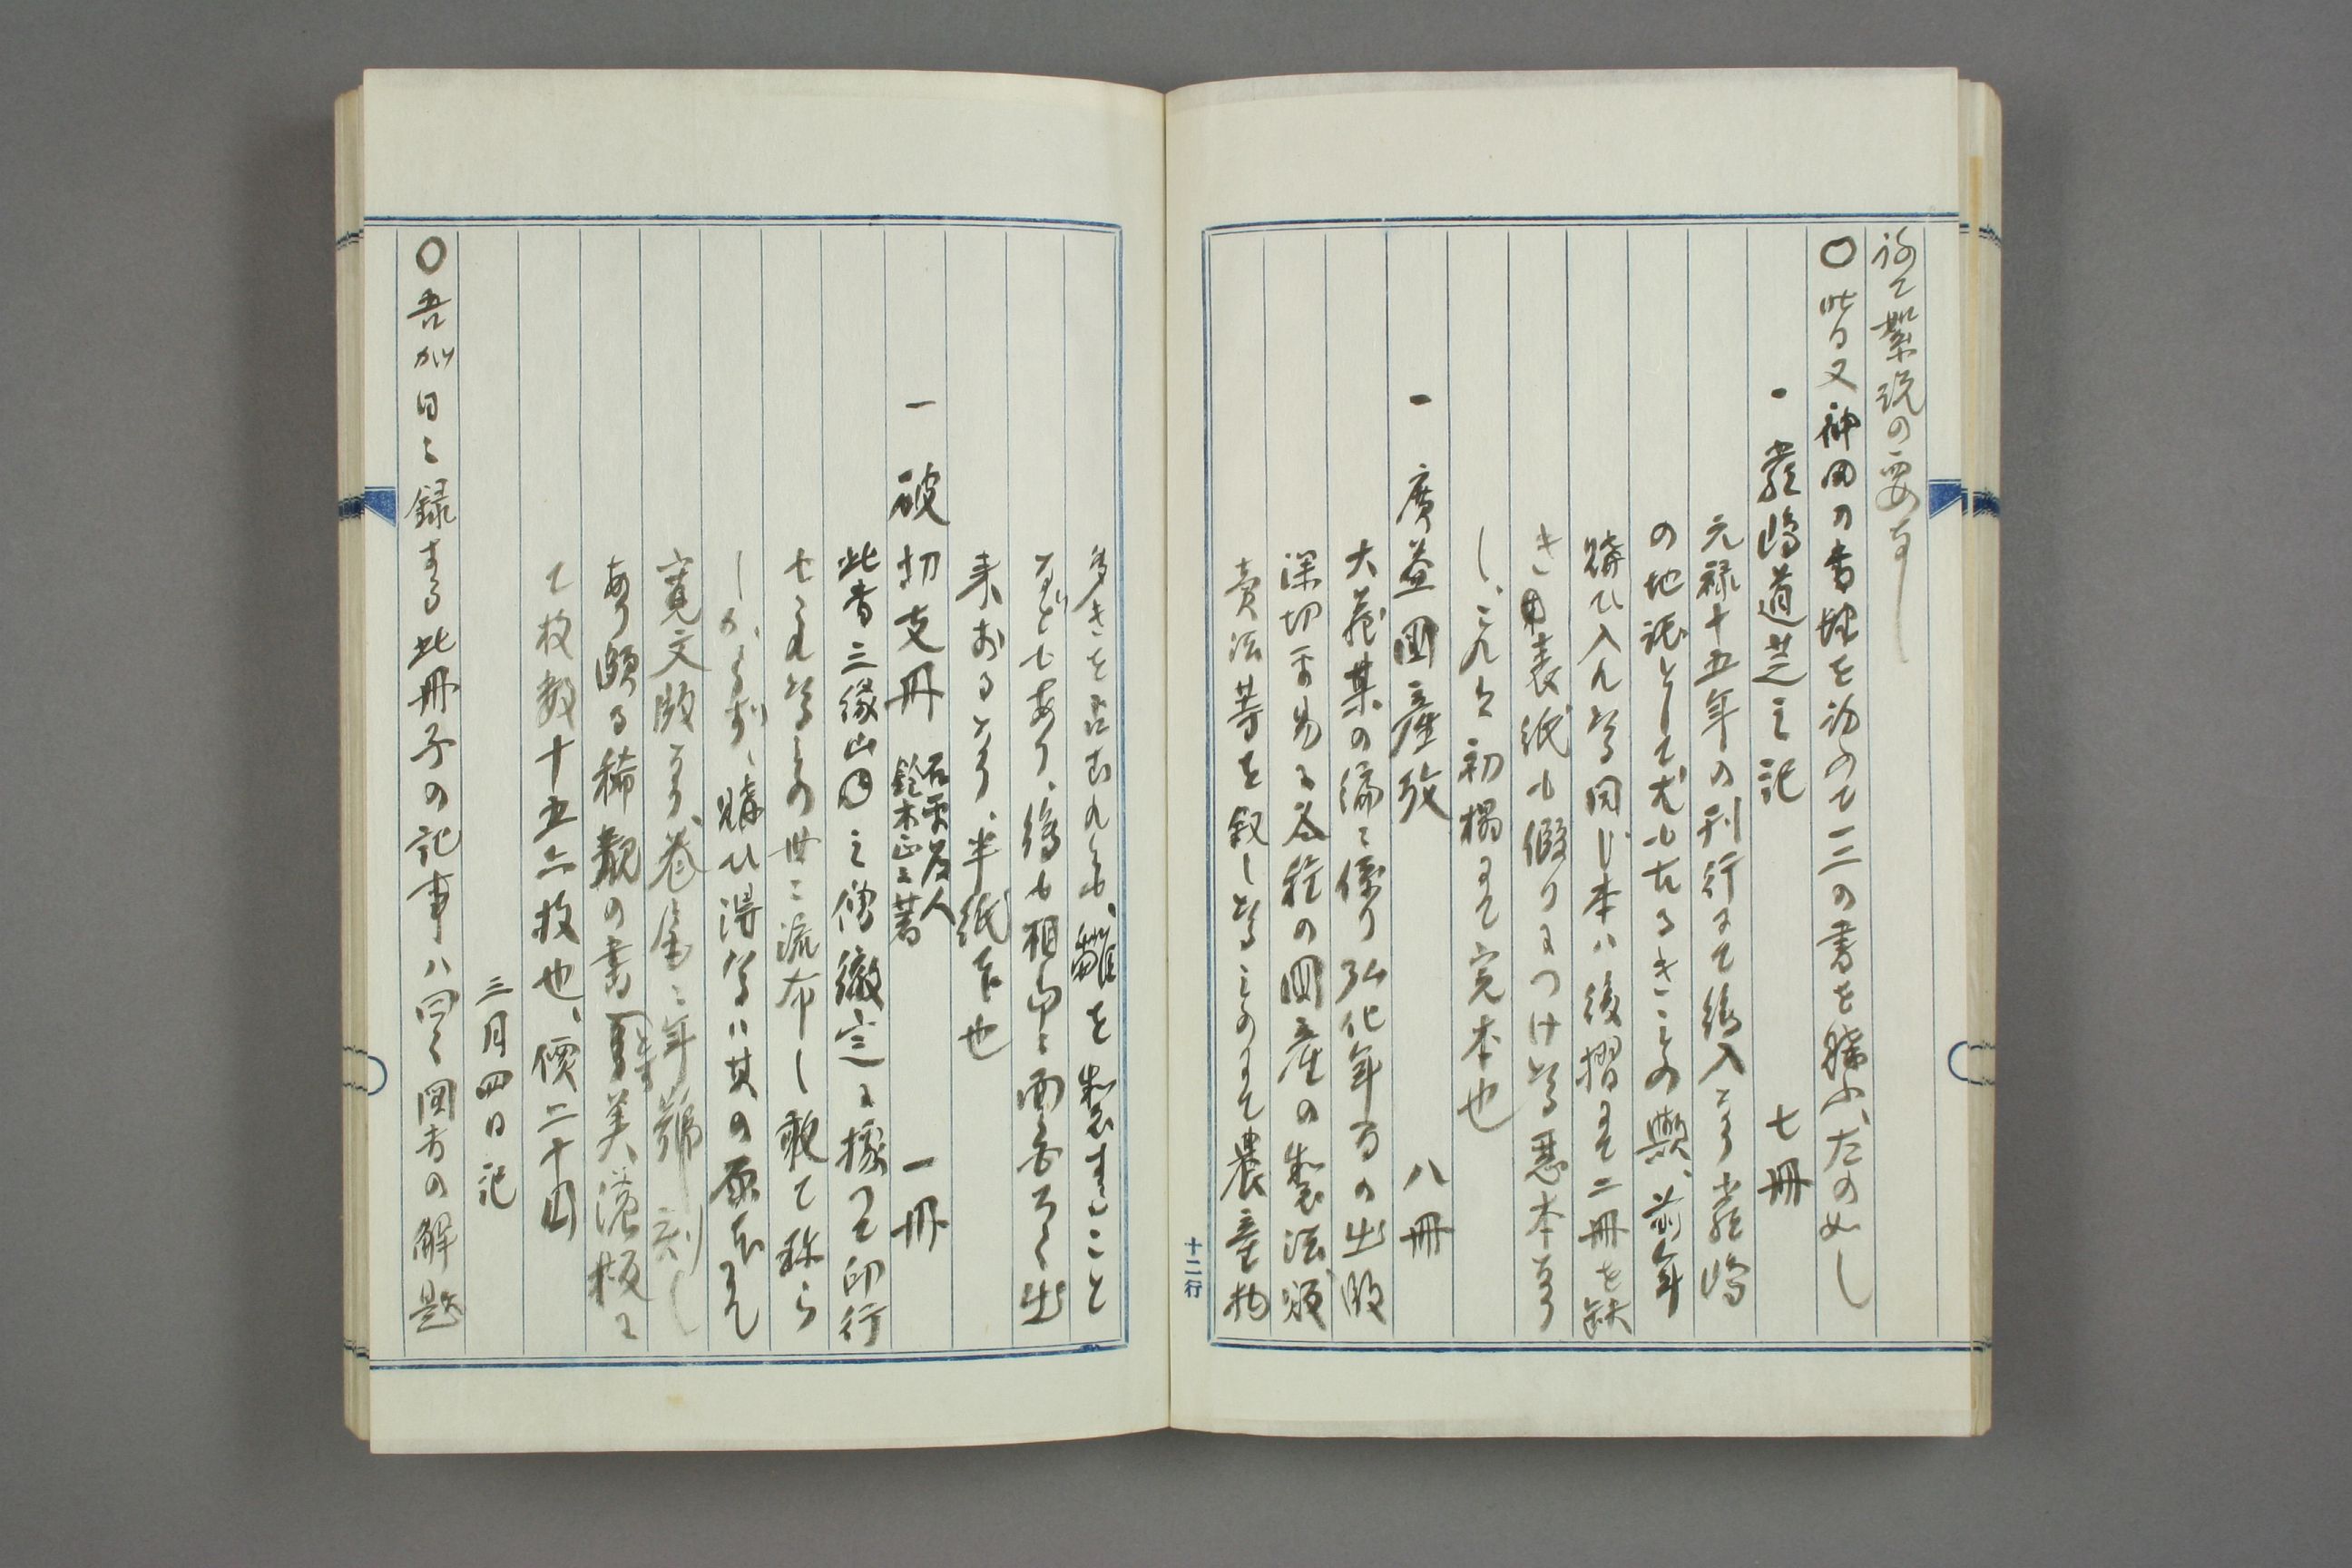 て絮説の要なし
〇此日又神田の書肆を訪ふて二三の書を購ふ、左の如し
一 厳嶋道芝之記 七冊
元禄十五年の刊行にて絵入なり厳嶋
の地誌としては尤も古るきものの歟、前年
購ひ入れたる同じ本ハ後摺にて二冊を缺
き表紙も假りにつけたる悪本なり
し、これハ初摺にて完本也
一 廣益国産考 八冊
大蔵某の編に係り弘化年間の出版
深切平易に各種の国産の製法販
賣法等を叙したるものにて農産物
多きを占むれとも、雛を製すること
などもあり、絵も相応に面白ろく出
来おるなり、半紙本也
一 破切支丹 石平道人 鈴木正三著 一冊
此書三縁山之僧徹定に據つて印行
せられたるもの世に流布し敢て珍ら
しからず、購ひ得たるハ其の原本にて
寛文版なり、巻尾に年号刻し
あり頗る稀覯の書とす美濃板に
て枚数十五六枚也、價二十円
三月四日記
〇吾が日に録する此冊子の記事ハ曰く図書の解題
十二行